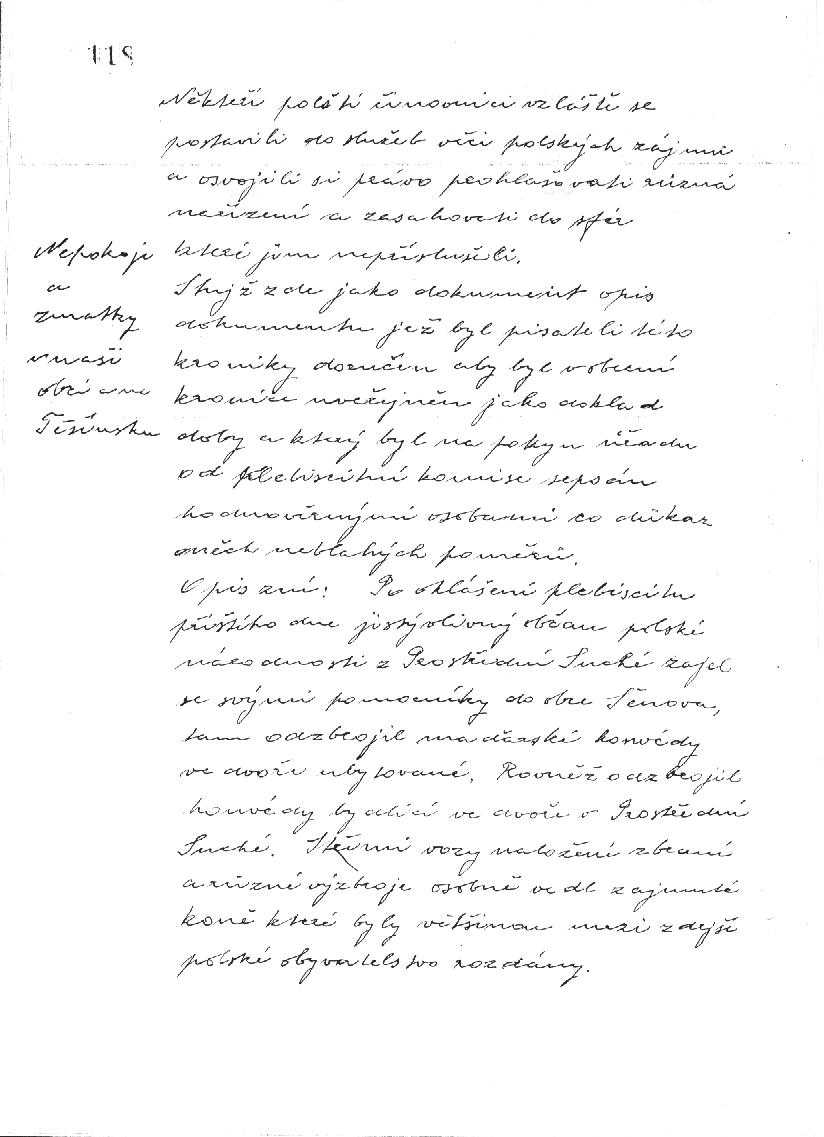 118
Někteří polští činovníci vzláště se
postavili do služeb věci polských zájmů
a osvojili si právo prohlašovati různá
nařízení a zasahovati do sfér
které jim nepříslušeli.
Nepokoje
a
zmatky
v naší
obci a na
Těšínsku
Stujž zde jako dokument opis
dokumentu jež byl pisateli této
kroniky doručen aby byl v obecní
kronice uveřejněn jako doklad
doby a který byl na pokyn úřadu
od plebiscitní komise sepsán
hodnověrnými osobami co důkaz
oněch neblahých poměrů.
Opis zní: Po ohlášení plebiscitu
příštího dne jistý vlivný občan polské
národnosti z Prostřední Suché zajel
se svými pomocníky do obce Šenova,
tam odzbrojil maďarské honvédy
ve dvoře ubytované. Rovněž odzbrojil
honvédy bydlící ve dvoře v Prostřední
Suché. vozy naložení zbraní
a různé výzbroje osobně vedl zajmuté
koně které byly většinou mezi zdejší
polské obyvatelstvo rozdány.